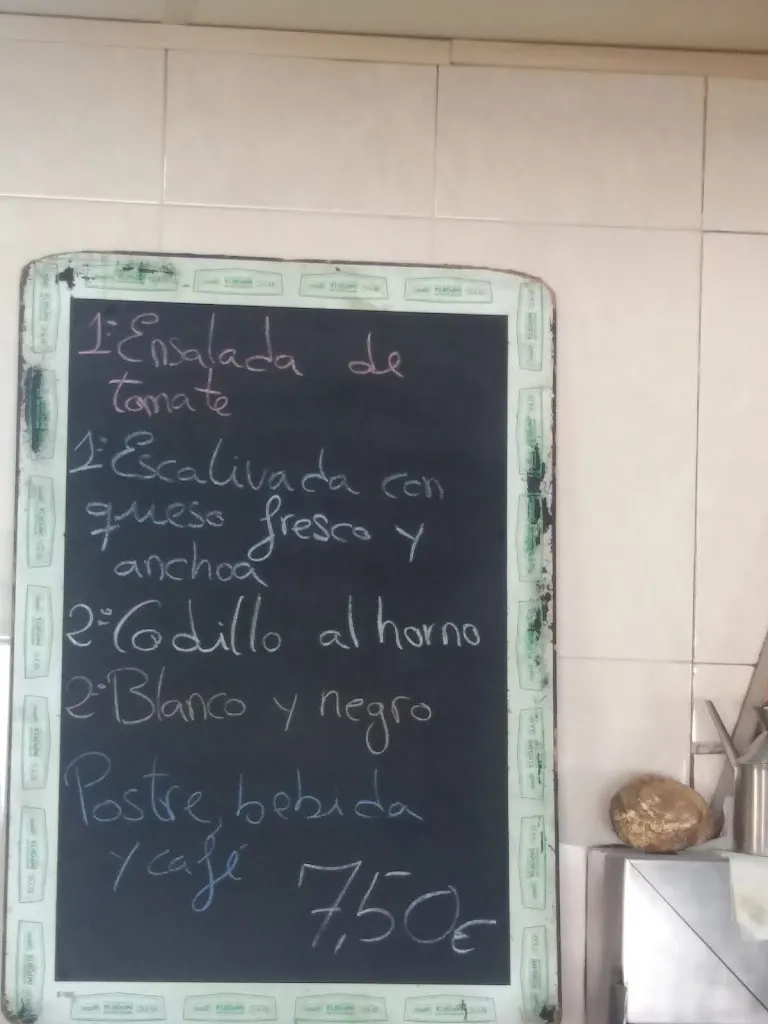 1º Ensalada de
tomate
1º Escalivada con
queso fresco y
anchoa
2º Codillo al horno
2º Blanco y negro
Postre, bebida
y café
7,50€